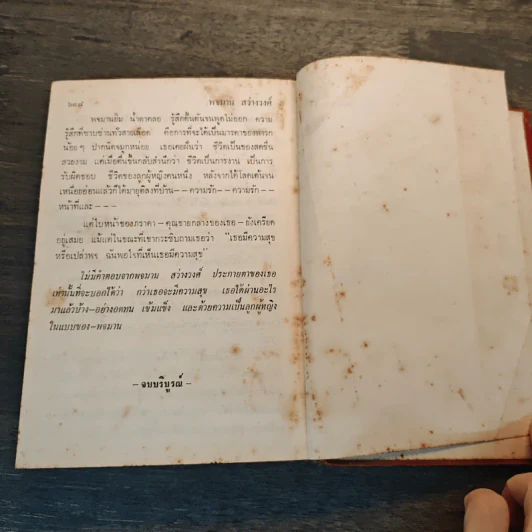 ๖๓๘ พจมาน สว่างวงศ์
พจมานยิ้ม น้ำตาคลอ รู้สึกตื้นตันจนพูดไม่ออก ความ
รู้สึกที่ซาบซ่านทั่วสายเลือด คือการที่จะได้เป็นมารดาของทารก
น้อย ๆ ปากนิดจมูกหน่อย เธอเคยฝันว่า ชีวิตเป็นของสดชื่น
สวยงาม แต่เมื่อตื่นขึ้นกลับสำนึกว่า ชีวิตเป็นการงาน เป็นการ
รับผิดชอบ ชีวิตของลูกผู้หญิงคนหนึ่ง หลังจากโต้โลดเต้นจน
เหนื่อยอ่อนแล้วก็ได้มายุติลงที่บ้าน--ความรัก--ความรัก--
หน้าที่และ ---
แต่ใบหน้าของภราดา-คุณชายกลางของเธอ-ยังเครียด
อยู่เสมอ แม้แต่ในขณะที่เขากระซิบถามเธอว่า "เธอมีความสุข
หรือเปล่าพจ ฉันพอใจที่เห็นเธอมีความสุข"
ไม่มีคำตอบจากพจมาน สว่างวงศ์ ประกายตาของเธอ
เท่านั้นที่จะบอกได้ว่า กว่าเธอจะมีความสุข เธอได้ผ่านอะไร
มาแล้วบ้าง-อย่างอดทน เข้มแข็ง และด้วยความเป็นลูกผู้หญิง
ในแบบของ-พจมาน
-จบบริบูรณ์-